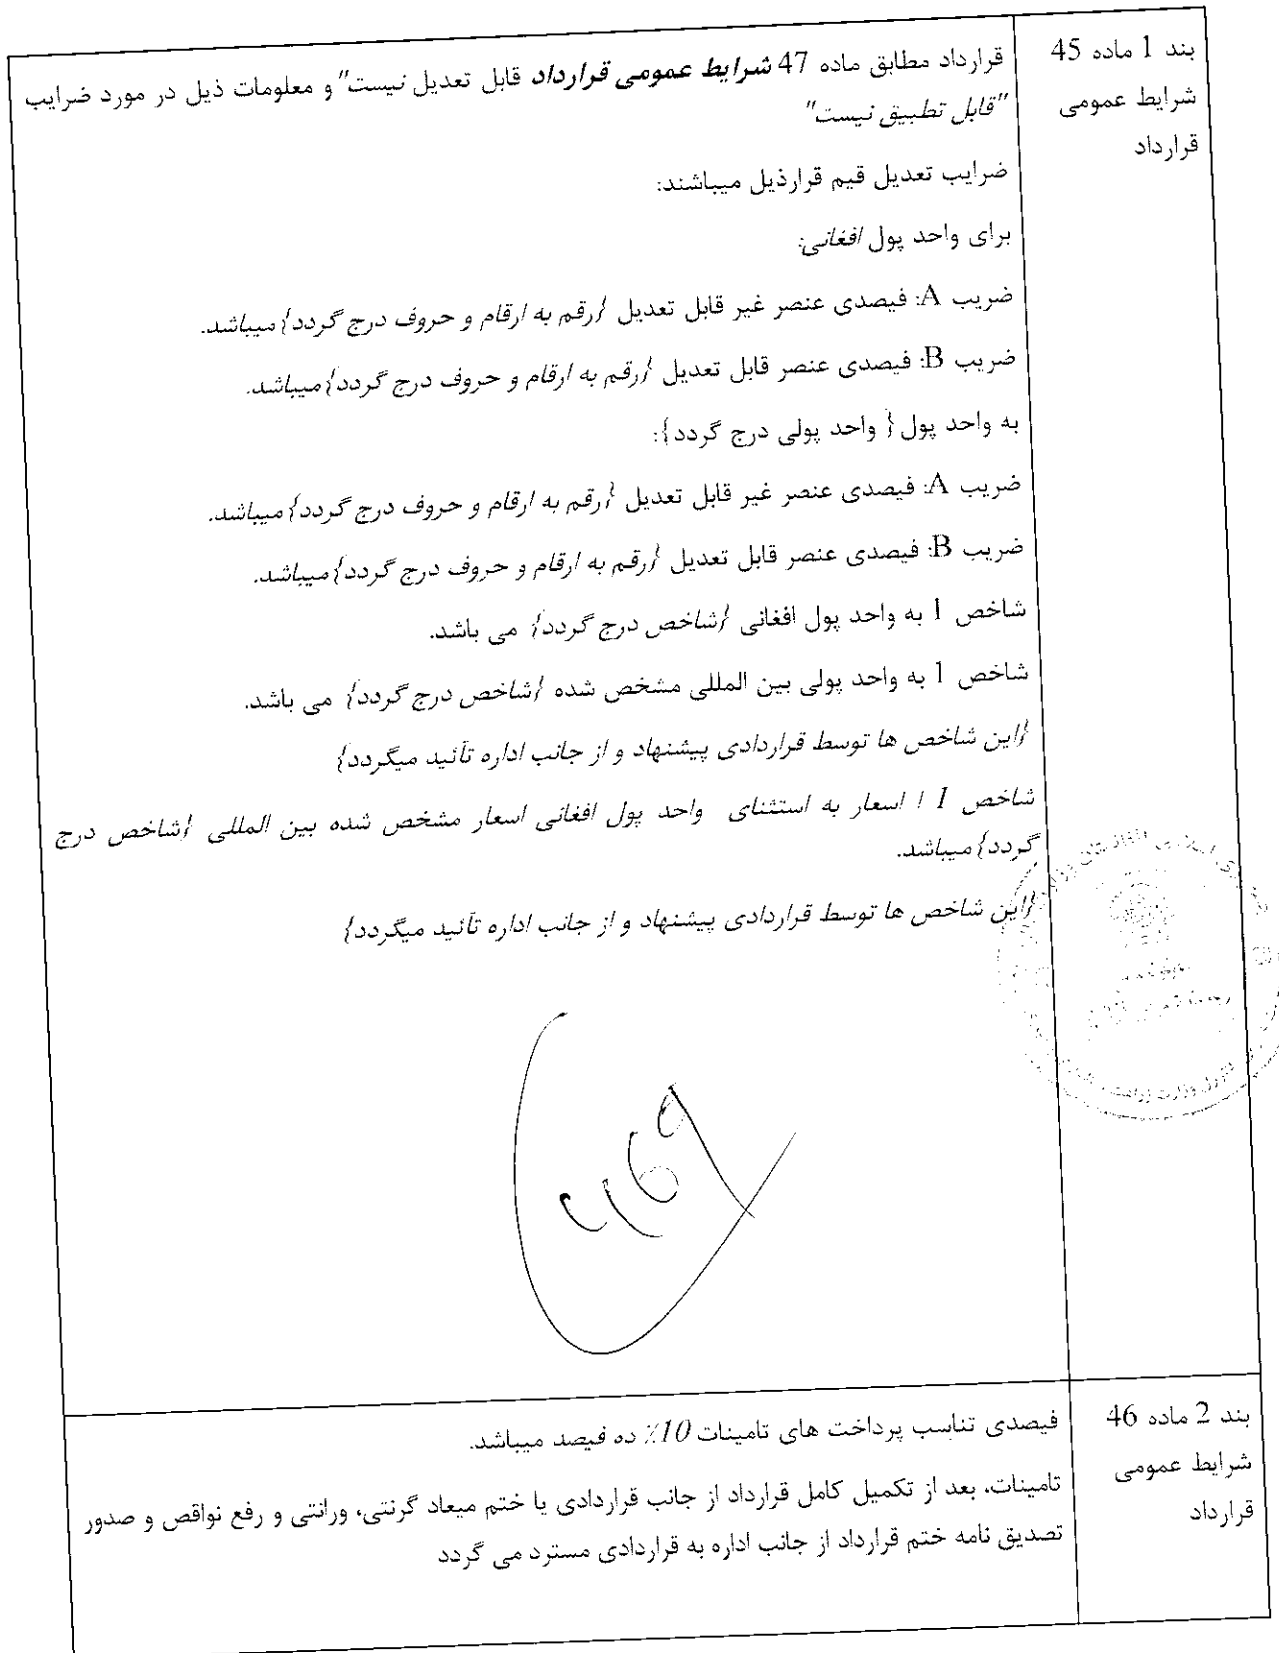 بند 1 ماده 45
شرایط عمومی
قرارداد
قرارداد مطابق ماده 47 شرایط عمومی قرارداد قابل تعدیل نیست" و معلومات ذیل در مورد ضرایب
"قابل تطبیق نیست"
ضرایب تعدیل قیم قرارذیل میباشند:
برای واحد پول افغانی:
ضریب A: فیصدی عنصر غیر قابل تعدیل {رقم به ارقام و حروف درج گردد} میباشد.
ضریب B: فیصدی عنصر قابل تعدیل {رقم به ارقام و حروف درج گردد} میباشد.
به واحد پول { واحد پولی درج گردد}:
ضریب A: فیصدی عنصر غیر قابل تعدیل {رقم به ارقام و حروف درج گردد} میباشد.
ضریب B: فیصدی عنصر قابل تعدیل {رقم به ارقام و حروف درج گردد} میباشد.
شاخص 1 به واحد پول افغانی {شاخص درج گردد} می باشد.
شاخص 1 به واحد پولی بین المللی مشخص شده {شاخص درج گردد} می باشد.
{این شاخص ها توسط قراردادی پیشنهاد و از جانب اداره تائید میگردد}
شاخص 1 ا اسعار به استثنای واحد پول افغانی اسعار مشخص شده بین المللی {شاخص درج
گردد} میباشد.
{این شاخص ها توسط قراردادی پیشنهاد و از جانب اداره تائید میگردد}
بند 2 ماده 46
شرایط عمومی
قرارداد
فیصدی تناسب پرداخت های تامینات 10٪ ده فیصد میباشد.
تامینات، بعد از تکمیل کامل قرارداد از جانب قراردادی یا ختم میعاد گرنتی، ورانتی و رفع نواقص و صدور
تصدیق نامه ختم قرارداد از جانب اداره به قراردادی مسترد می گردد